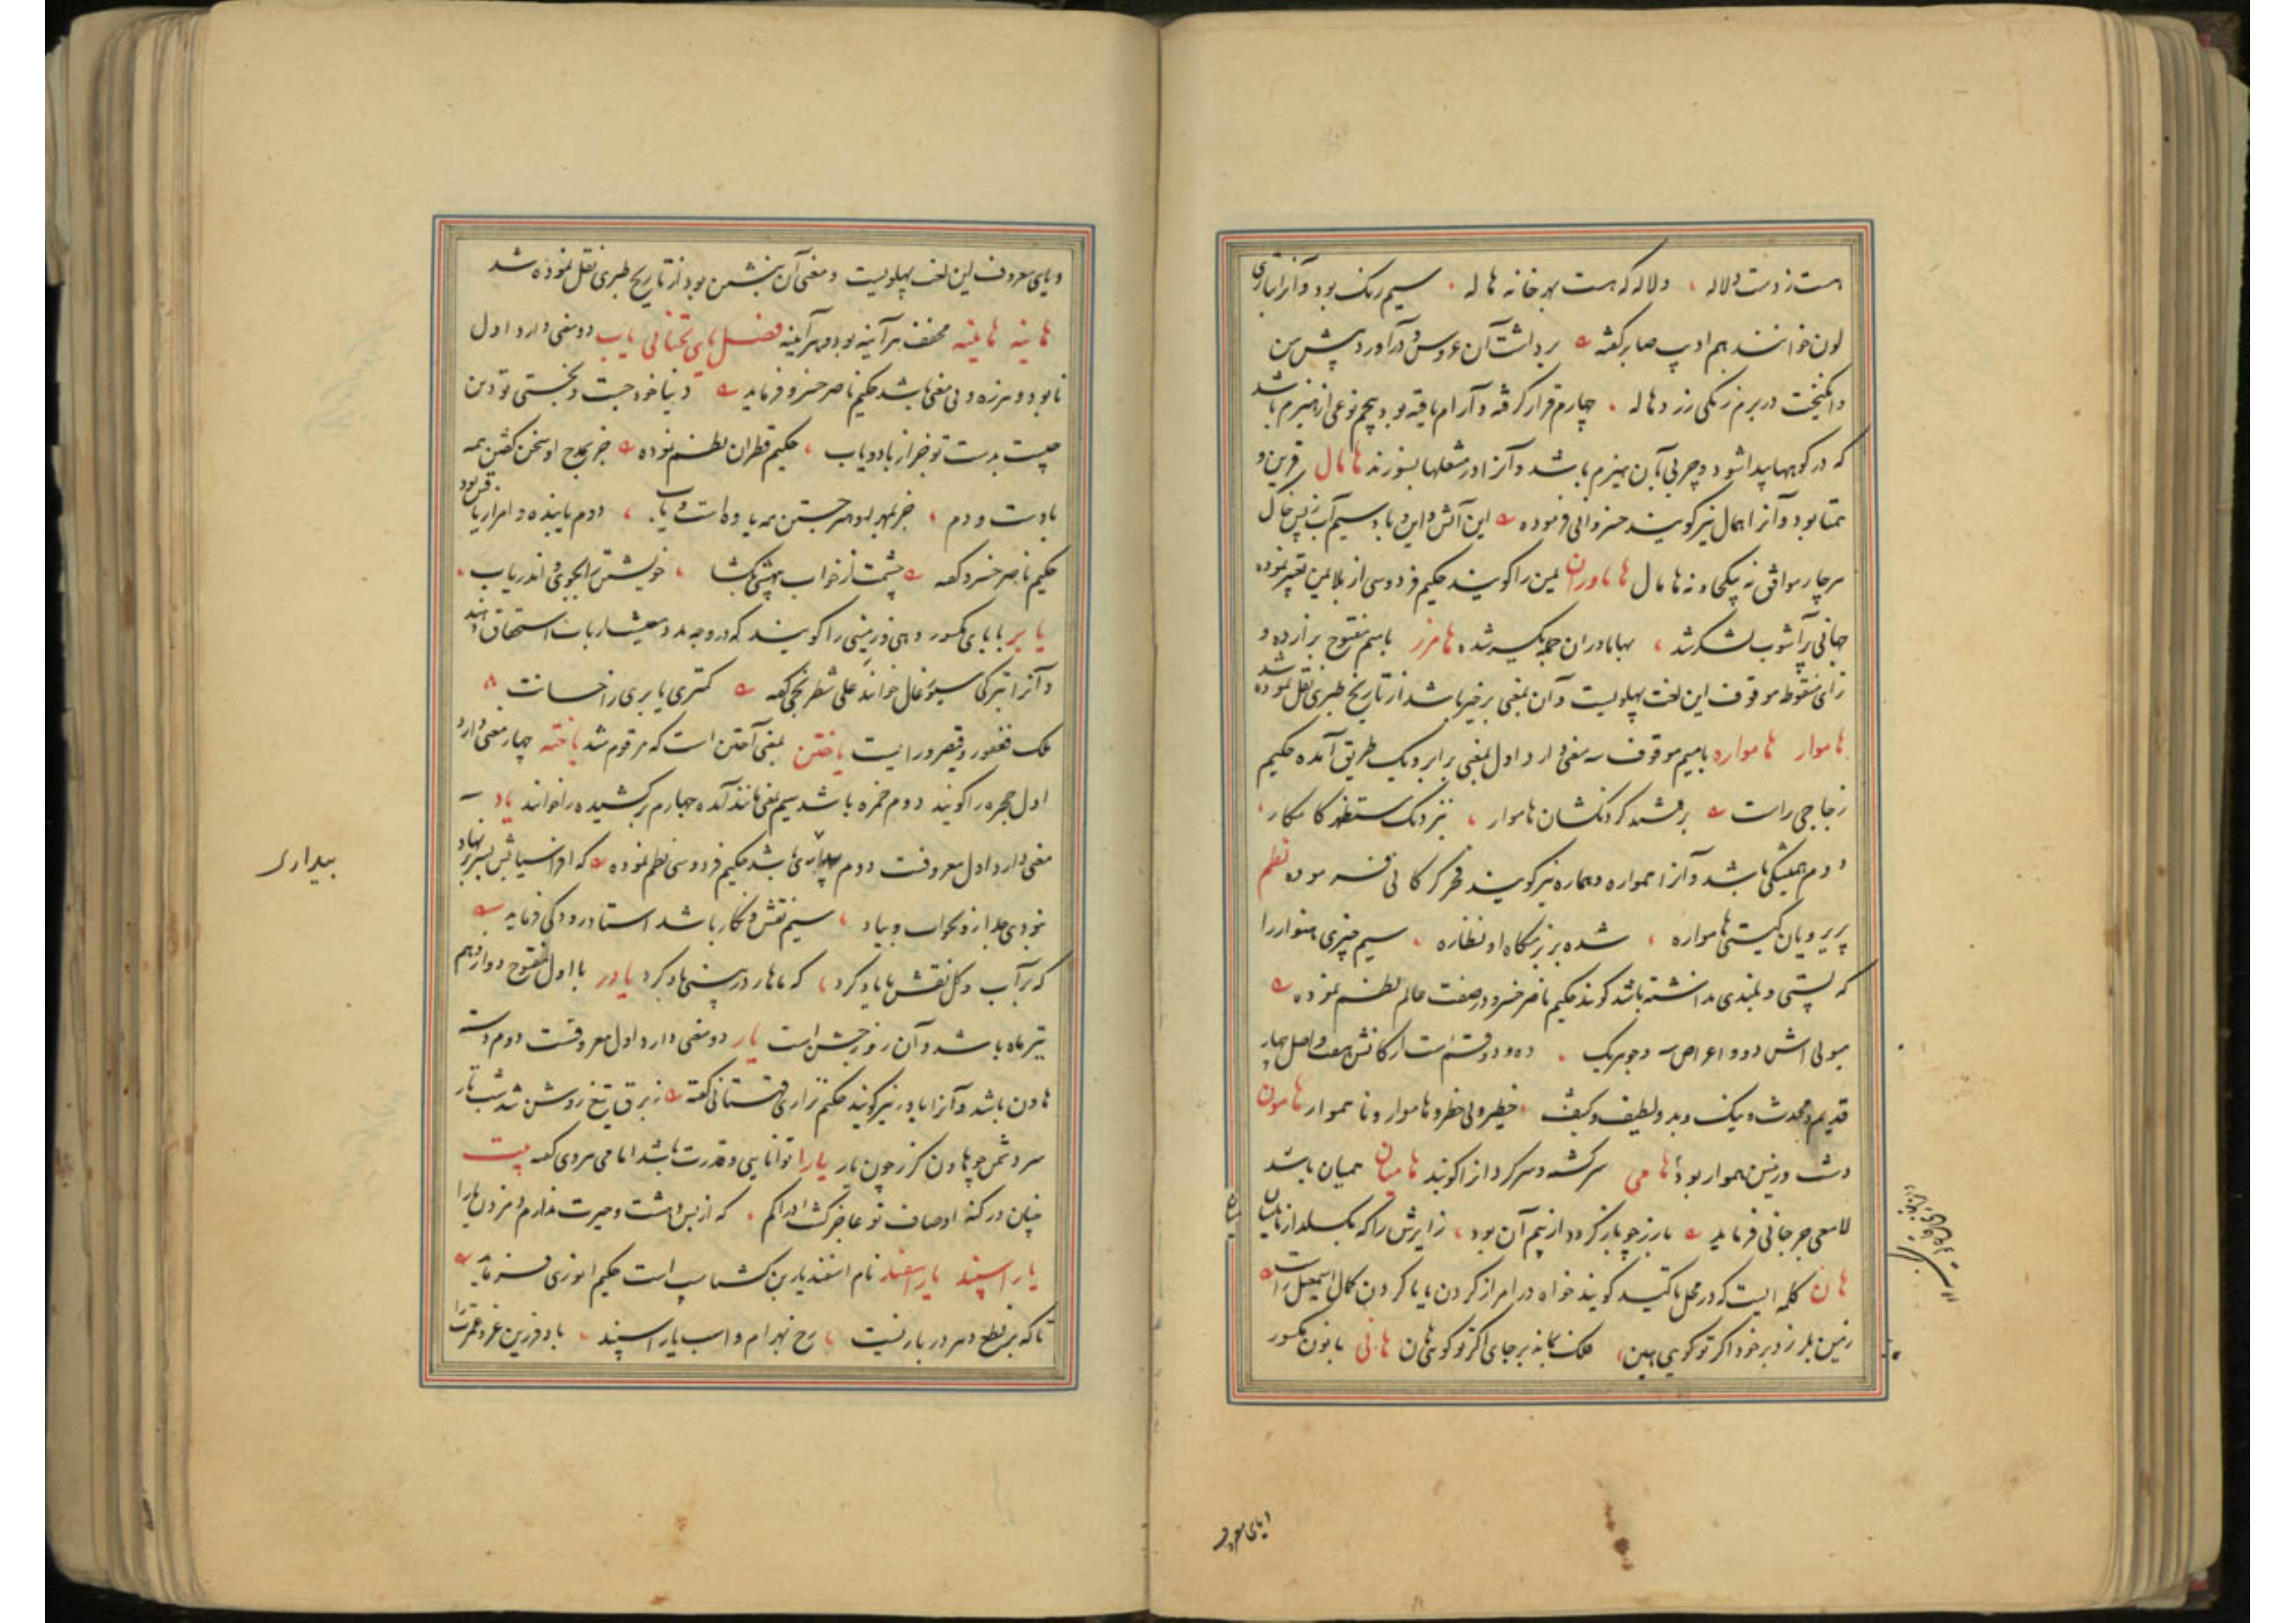 هست ز دست دلاله ، دلاله که هست بهر خانه هاله . سیم رنک بود و آنرا بتازی
لون خوانند هم ادیب صابر کفته برداشت آن عروس و درآورد پیش من
در بزم زنکی زرد هاله . چهارم قرار کرفته و آرام یافته بود پنجم نوعی از هیزم باشد
که در کوهها پیدا شود و چربی بآن هیزم باشد و آنرا در مشعلها بسوزند هامال قرین و
همتا بود و آنرا همال نیز کویند خسروانی فرموده این آتش و این باد سیم آب ز پس خاک
هر چار موافق نه بیکجا و نه هامال هاماوران یمن را کویند حکیم فردوسی از بلا یمن تعبیر نموده
جهانی پرآشوب لشکر شد ، بهاماوران جمله یکسر شده هامرز با میم مفتوح برازده و
زای منقوطه موقوف این لغت پهلویست و آن بمعنی برخیز باشد از تاریخ طبری نقل نموده شد
هاموار هامواره با میم موقوف سه معنی دارد اول بمعنی برابر و یک طریق آمده حکیم
زجاجی راست برفتند کردنکشان هاموار ، بنزدیک کامکار
دوم همیشکی باشد و آنرا همواره و هماره نیز کویند فخر کرکانی فرموده نظم
پریرویان کیتی هامواره ، شده بر بزمکاه او نظاره . سیم چیزی هموار را
که پستی و بلندی نداشته باشد کویند حکیم ناصر خسرو در صفت عالم نظم نموده
هیولی اش دو و اعراض نه و جوهر یک . ده و دو قسمت ارکانش هفت و اصل چهار
قدیم و محدث و نیک و بد و لطیف و کثیف ، خطیر و بی خطر و هاموار و ناهموار هامون
دشت و زمین هموار بود هامی سرکشته و سرکردان را کویند هامیان همیان باشد
لامعی جرجانی فرماید مبارز چو باز کردد از بیم آن بود ، زایرش را که بکسلد از بار هامیان
هان کلمه ایست که در محل تاکید کویند خواه در امر از کردن یا ناکردن کمال اسمعیل راست
زمین بلرزد بر خود اگر تو کویی هین ، فلک بماند بر جای اگر تو کویی هان هانی با نون مکسور
ویای معروف
ویای معروف این لغت پهلویست و معنی آن بنشین بود از تاریخ طبری نقل نموده شد
هاینه هایینه مخفف هرآینه بود و هرآیینه فصل یای تحتانی یاب دو معنی دارد اول
نابود و هرزه و بی معنی باشد حکیم ناصر خسرو فرماید دنیا خود جست و نجستی تو دین
چیست بدست تو جز از باد و یاب ، حکیم قطران نظم نموده جز بمدح او سخن کفتن همه
بادست و دم ، جز بمهر او هنر جستن همه یاوه است و یاب ، دوم یابنده و امر از یافتن بود
حکیم ناصر خسرو کفته چشمت از خواب بیهشی بکشا ، خویشتن را بجوی و اندر یاب .
یابر با بای مکسور دهی و زمینی را کویند که در وجه مدد معیشت بارباب استحقاق دهند
و آنرا بترکی سیورغال خوانند علی شطرنجی کفته کمتری یابری را خسانت ۸
ملک فغفور و قیصر و رایست یاختن بمعنی آختن است که مرقوم شد یاخته چهار معنی دارد
اول حجره را کویند دوم خمره باشد سیم بمعنی مانند آمده چهارم برکشیده را خوانند یاد سه
معنی دارد اول معروفست دوم بیداری باشد حکیم فردوسی نظم نموده که افراسیابش بسر بر نهاد
نبودی جدا زو بخواب و بیاد ، سیم نقش و نکار باشد استاد رودکی فرماید
بیداری
که بر آب و کل نقش ما یاد کرد ، که ماهار در بینی باد کرد یاور با اول مفتوح دوازدهم
تیر ماه باشد و آن روز جشن است یار دو معنی دارد اول معروفست دوم دسته
هاون باشد و آنرا یاور نیز کویند حکیم نزاری قهستانی کفته ز برق تیغ روشن شد شب تار
سر دشمن چو هاون کرز چون یار یارا توانایی و قدرت باشد امامی هروی کفته بیت
چنان در کنه اوصاف تو عاجز کشت ادراکم . که از بس دهشت و حیرت ندارم دم زدن یارا
یار اسپند یار اسفند نام اسفندیار بن کشتاسپ است حکیم انوری فرماید
تا که بر نطع دهر در بازیست رخ بهرام و اسب یار اسپند ، باد فرزین عز و عمرت را